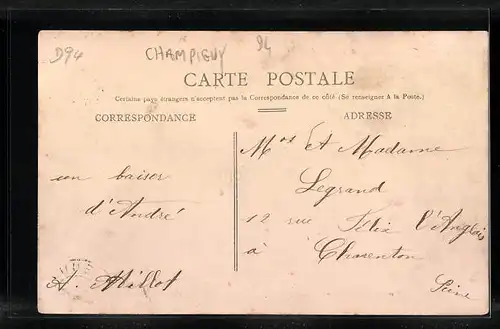 D94 CHAMPIGNY 94
CARTE POSTALE
Certains pays étrangers n'acceptent pas la Correspondance de ce côté (Se renseigner à la Poste.)
CORRESPONDANCE
ADRESSE
un baiser
d'André
A. Millot
Et Madame
Legrand
12 rue Félix l'Anglais
à Charenton
Seine